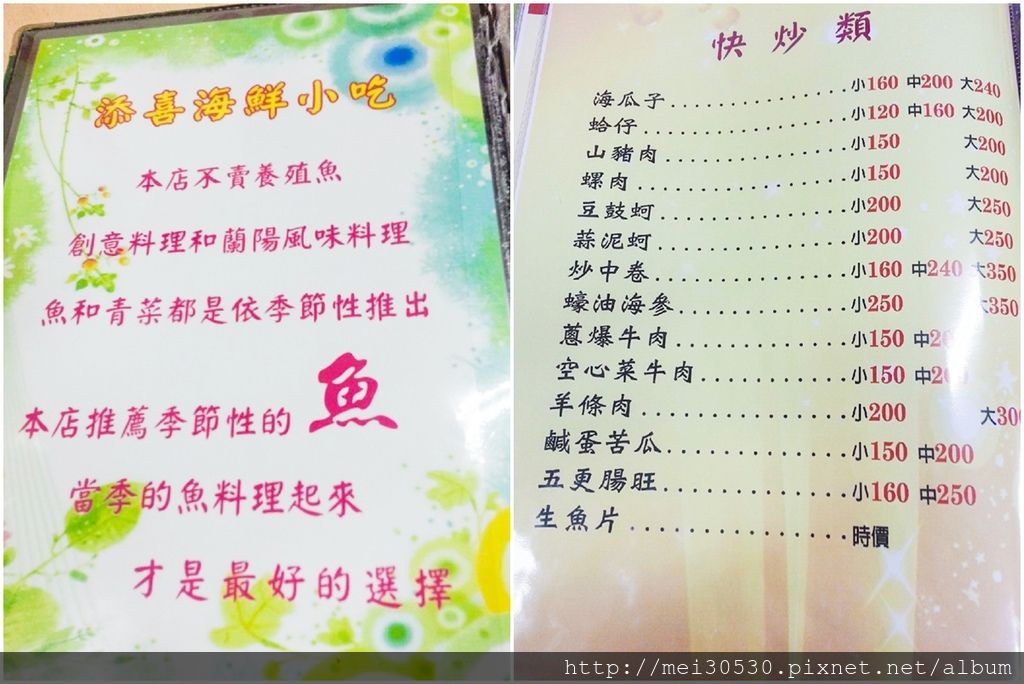 添喜海鮮小吃
本店不賣養殖魚
創意料理和蘭陽風味料理
魚和青菜都是依季節性推出
本店推薦季節性的 魚
當季的魚料理起來
才是最好的選擇
快炒類
海瓜子..............小160 中200 大240
蛤仔..............小120 中160 大200
山豬肉..............小150 大200
螺肉..............小150 大200
豆鼓蚵..............小200 大250
蒜泥蚵..............小200 大250
炒中卷..............小160 中240 大350
蠔油海參..............小250 大350
蔥爆牛肉..............小150 中20
空心菜牛肉..............小150 中20
羊條肉..............小200 大300
鹹蛋苦瓜..............小150 中200
五更腸旺..............小160 中250
生魚片..............時價
http://mei30530.pixnet.net/album